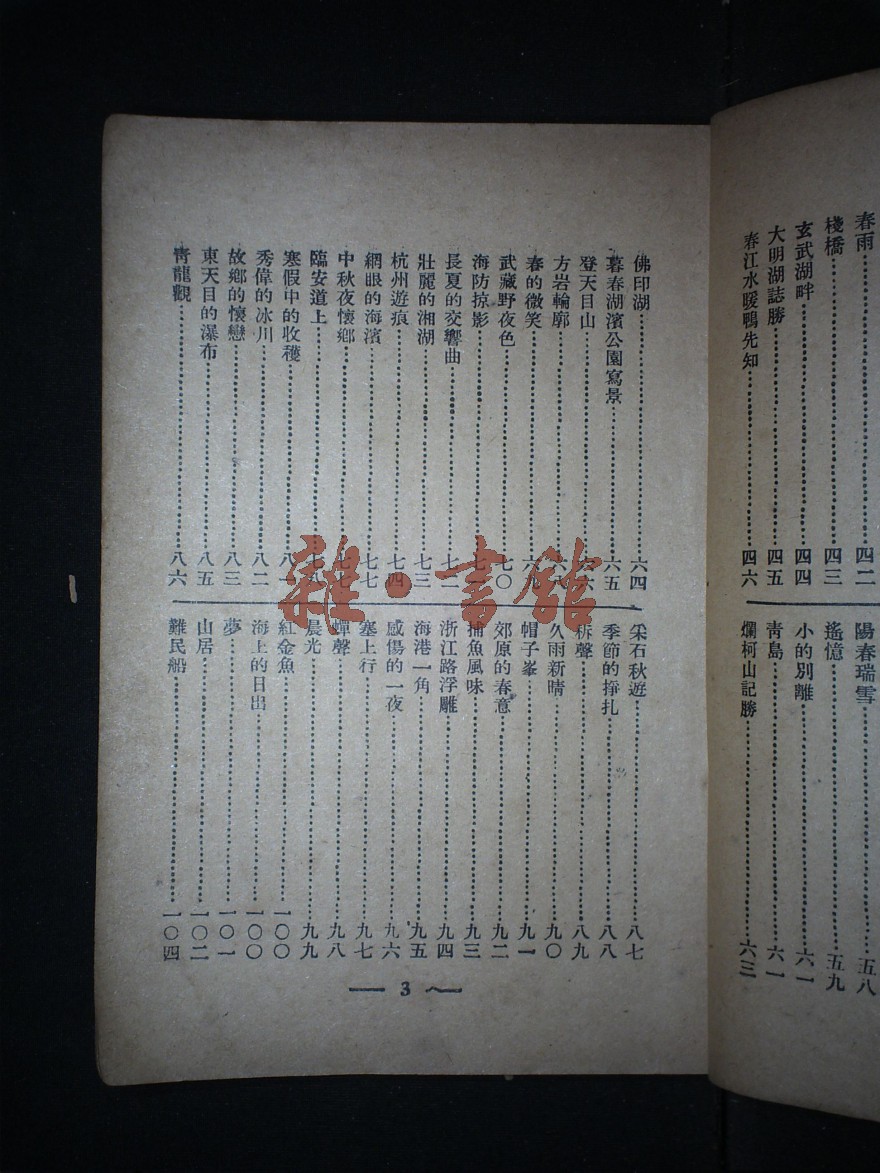 春雨……四二
棧橋……四三
玄武湖畔……四四
大明湖誌勝……四五
春江水暖鴨先知……四六
陽春瑞雪……五八
遙憶……五九
小的別離……六一
青島……六一
爛柯山記勝……六三
佛印湖……六四
暮春湖濱公園寫景……六五
登天目山……六六
方岩輪廓……六八
春的微笑……六九
武藏野夜色……七〇
海防掠影……七一
長夏的交響曲……七二
壯麗的湘湖……七三
杭州遊痕……七四
網眼的海濱……七七
中秋夜懷鄉……七七
臨安道上……七八
寒假中的收穫……八一
秀偉的冰川……八二
故鄉的懷戀……八三
東天目的瀑布……八五
青龍觀……八六
采石秋遊……八七
季節的掙扎……八八
柝聲……八九
久雨新晴……九〇
帽子峯……九一
郊原的春意……九二
捕魚風味……九三
浙江路浮雕……九四
海港一角……九五
感傷的一夜……九六
塞上行……九七
蟬聲……九八
晨光……九九
紅金魚……一〇〇
海上的日出……一〇〇
夢……一〇一
山居……一〇二
難民船……一〇四
— 3 —
雜·書館